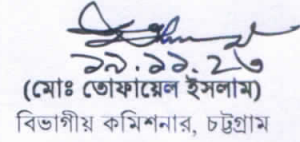 ১৯.১১.২৩
(মোঃ তোফায়েল ইসলাম)
বিভাগীয় কমিশনার, চট্টগ্রাম